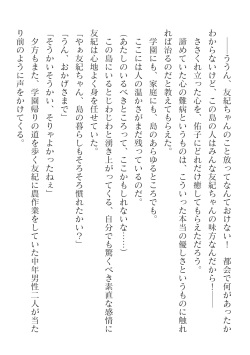 ――ううん、友紀ちゃんのこと放ってなんておけない！　都会で何があったか
わからないけど、この島の人はみんな友紀ちゃんの味方なんだから！――
ささくれ立った心を、佑子にどれだけ癒してもらえただろう。
諦めていた心の難病というものは、こういった本当の優しさというものに触れ
れば治るのだと教えてもらえた。
学園にも、家庭にも、島のあらゆるところでも。
ここには人の温かさがまだ残っているのだ。
（あたしのいるべきところって、ここかもしれないな……）
この島にいるとじわじわと湧き上がってくる、自分でも驚くべき素直な感情に
友紀は心地よく身を任せていた。
「やぁ友紀ちゃん、島の暮らしもそろそろ慣れたかい？」
「うん、おかげさまで」
「そうかいそうかい、そりゃよかったねぇ」
夕方もまた、学園帰りの道を歩く友紀に農作業をしていた中年男性二人が当た
り前のように声をかけてくる。